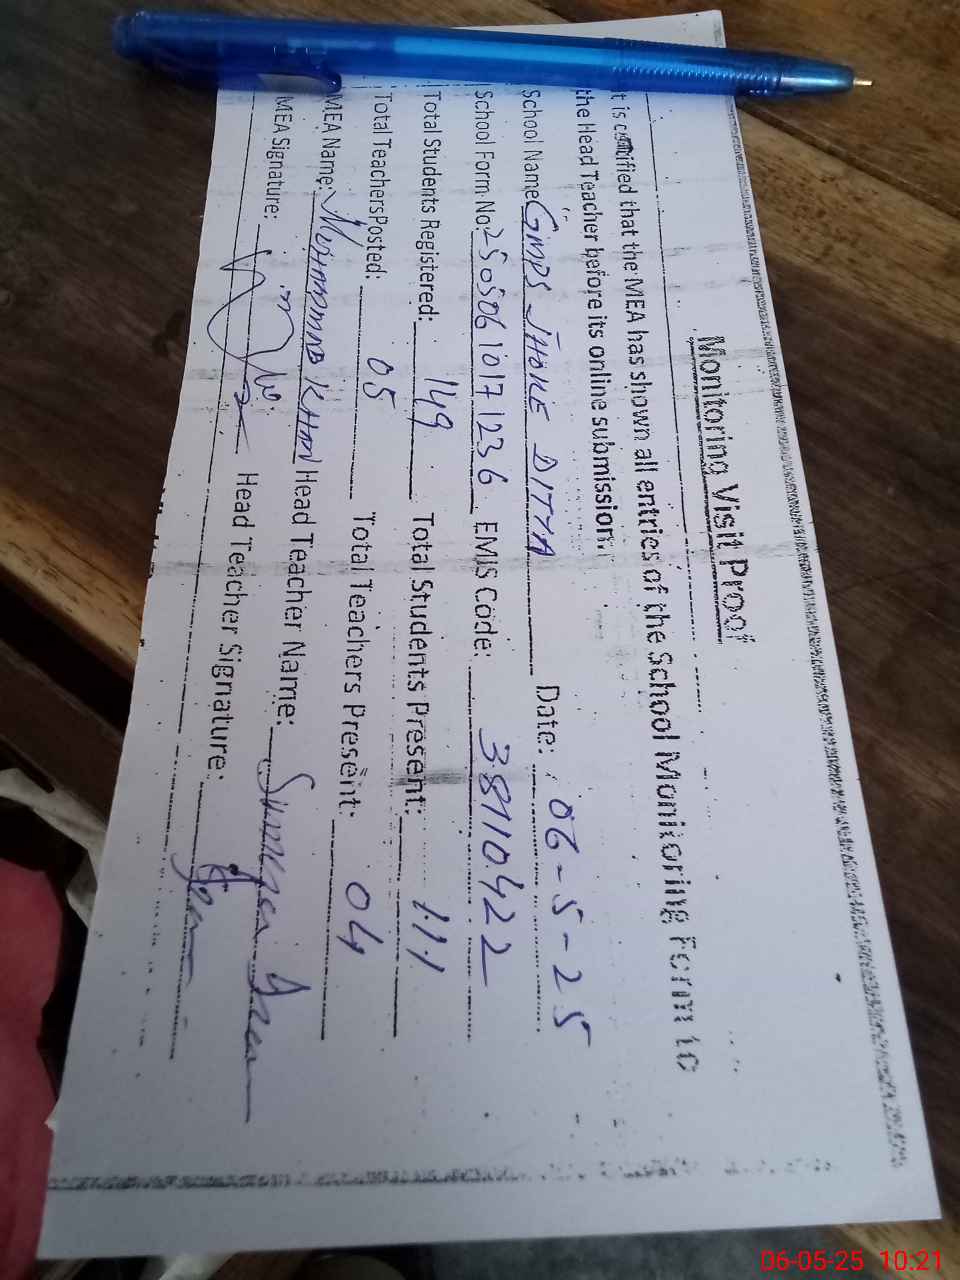 Monitoring Visit Proof
It is certified that the MEA has shown all entries of the School Monitoring Form to
the Head Teacher before its online submission.
School Name: GMPS JHOKE DITTA Date: 06-5-25
School Form No: 25050610171236 EMIS Code: 38110422
Total Students Registered: 149 Total Students Present: 111
Total Teachers Posted: 05 Total Teachers Present: 04
MEA Name: MUHAMMAD KHAN Head Teacher Name:
MEA Signature: Head Teacher Signature:
06-05-25 10:21